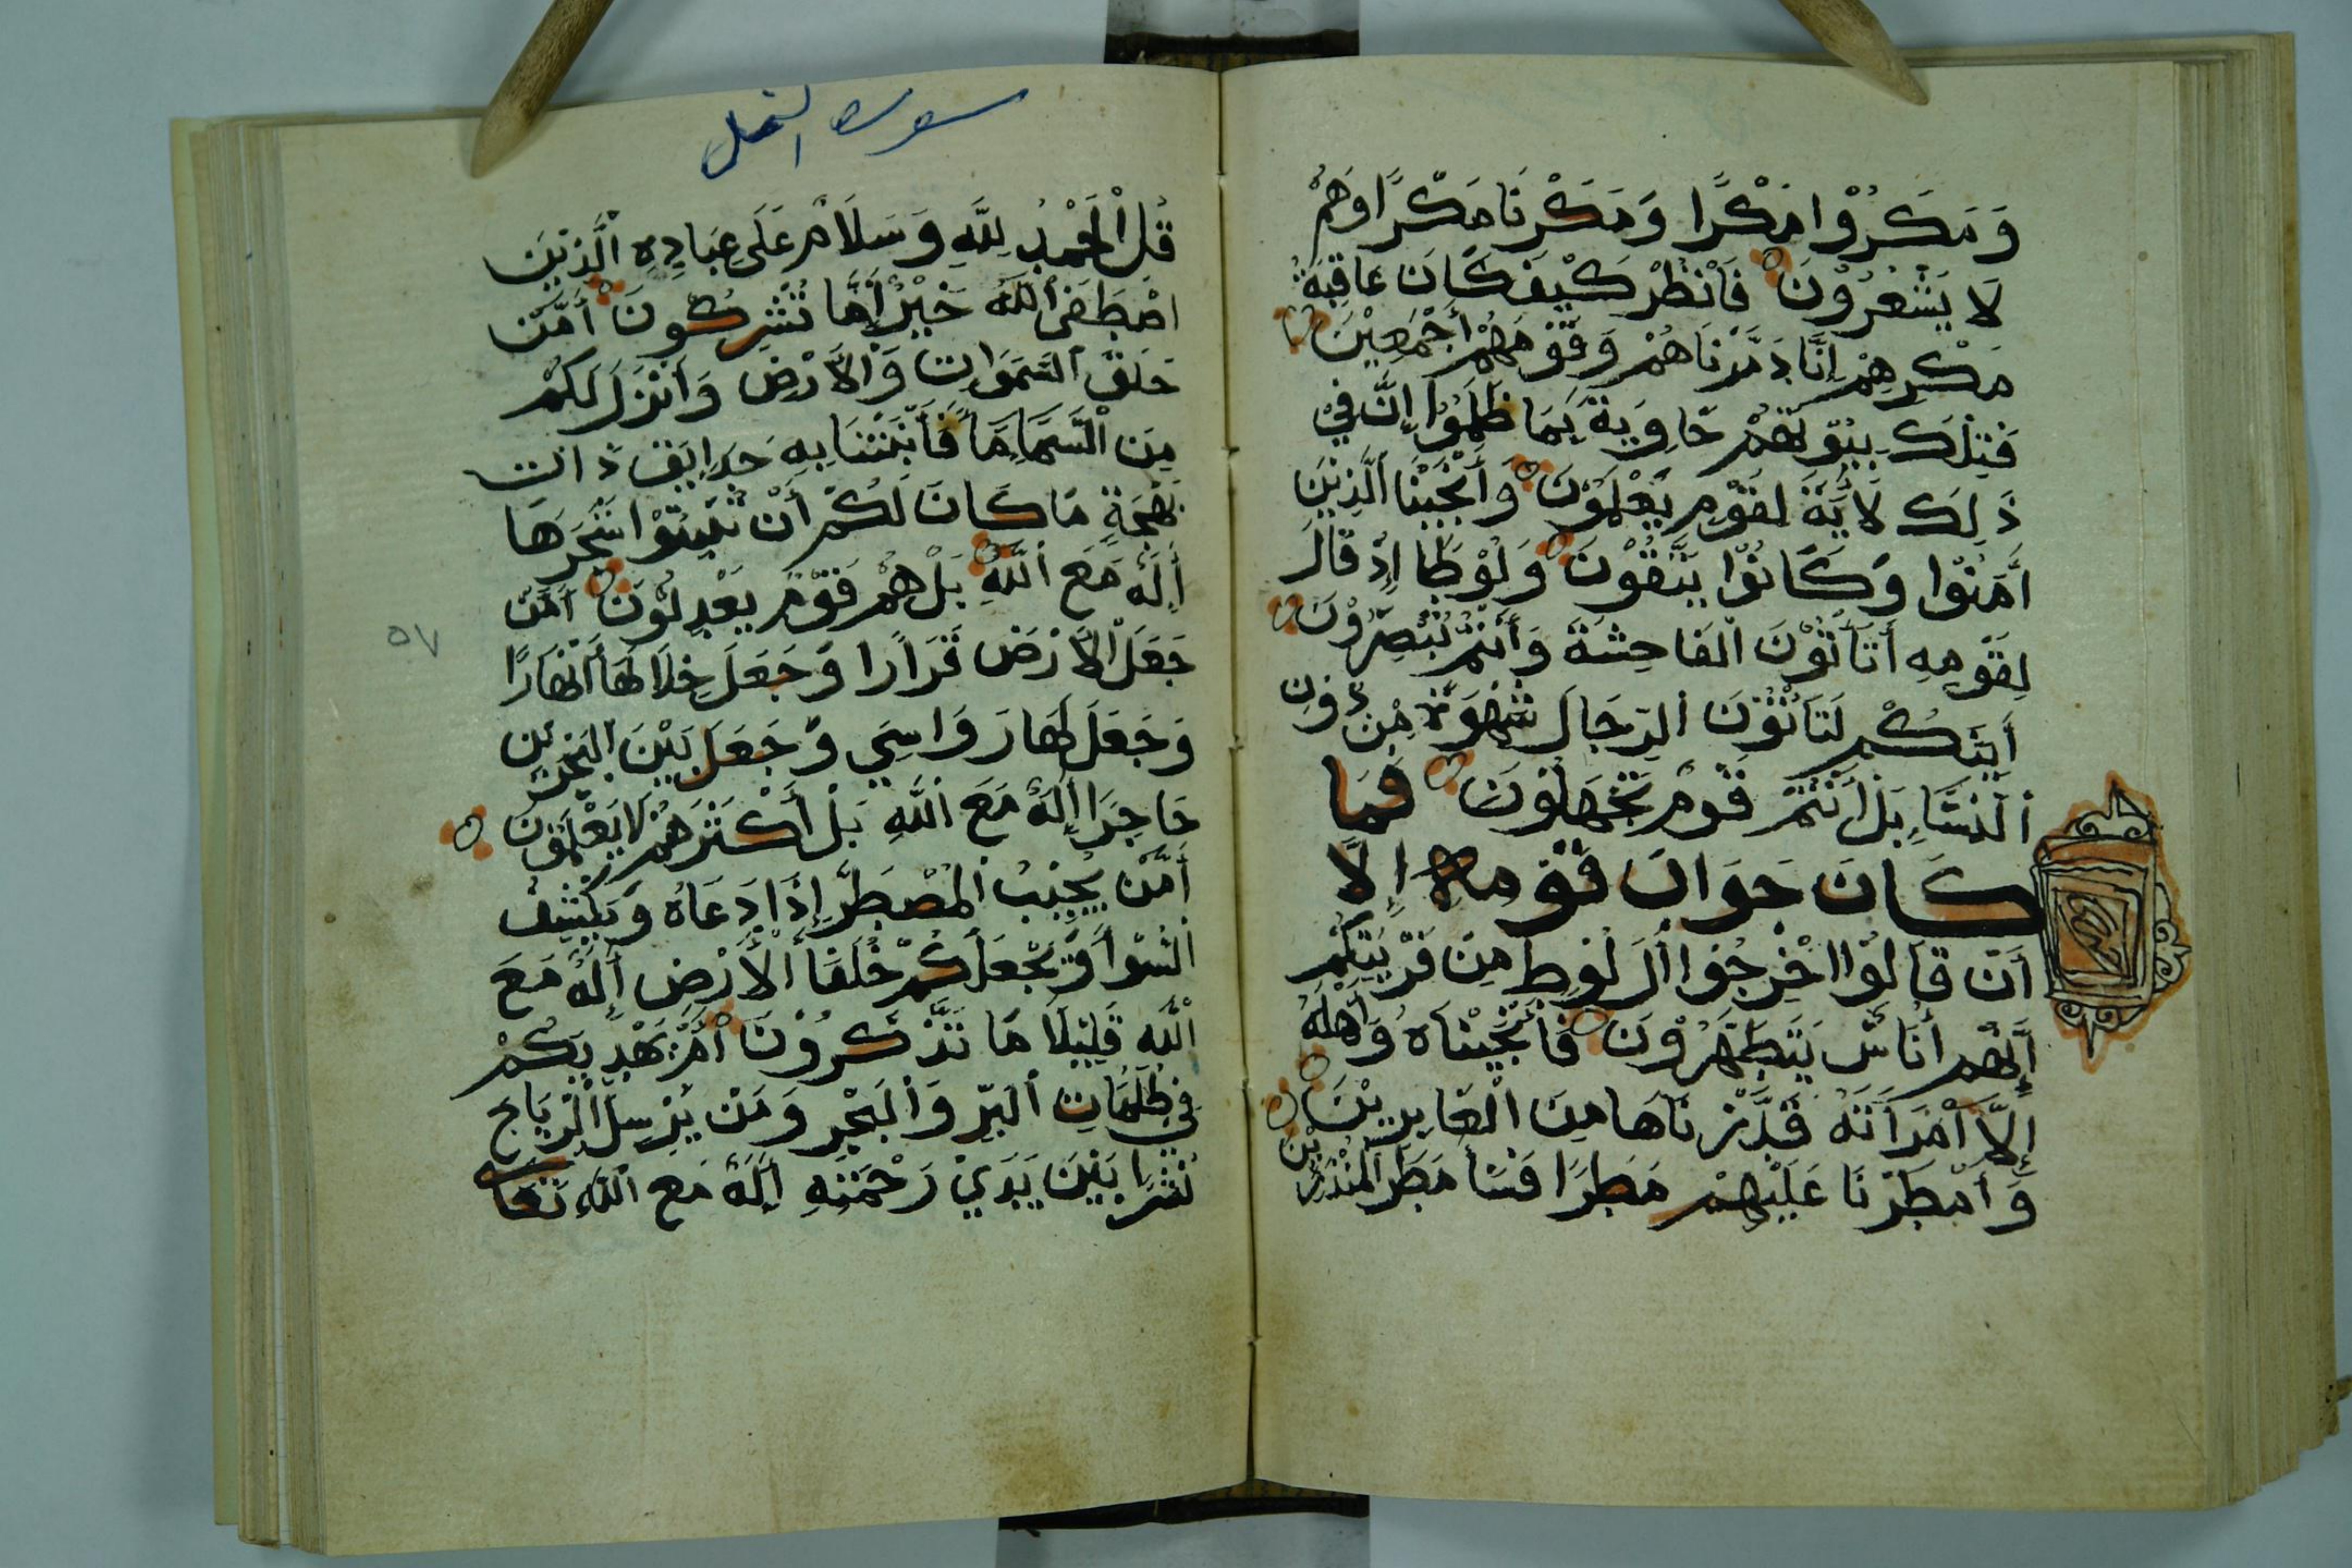 وَمَكَرُوْا مَكْرًا وَمَكَرْنَا مَكْرًا وَهُمْ
لَا يَشْعُرُوْنَ فَانْظُرْ كَيْفَ كَانَ عَاقِبَةُ
مَكْرِهِمْ إِنَّا دَمَّرْنَاهُمْ وَقَوْمَهُمْ أَجْمَعِيْنَ
فَتِلْكَ بِيُوْتُهُمْ خَاوِيَةً بِمَا ظَلَمُوْا إِنَّ فِيْ
ذَلِكَ لَأَيَةً لِقَوْمٍ يَعْلَمُوْنَ وَأَنْجَيْنَا الَّذِيْنَ
أَمَنُوْا وَكَانُوْا يَتَّقُوْنَ وَلُوْطًا إِذْ قَالَ
لِقَوْمِهِ أَتَأْتُوْنَ الْفَاحِشَةَ وَأَنْتُمْ تُبْصِرُوْنَ
أَيِنَّكُمْ لَتَأْتُوْنَ الرِّجَالَ شَهْوَةً مِنْ دُوْنِ
النِّسَاءِ بَلْ أَنْتُمْ قَوْمٌ تَجْهَلُوْنَ فَمَا
كَانَ جَوَابَ قَوْمِهِ إِلَّا
أَنْ قَالُوْا اخْرِجُوا أَلَ لُوْطٍ مِنْ قَرْيَتِكُمْ
إِنَّهُمْ أُنَاسٌ يَتَطَهَّرُوْنَ فَأَنْجَيْنَاهُ وَأَهْلَهُ
إِلَّا امْرَأَتَهُ قَدَّرْنَاهَا مِنَ الْغَابِرِيْنَ
وَأَمْطَرْنَا عَلَيْهِمْ مَطَرًا فَسَأَ مَطَرُ الْمُنْذَرِيْنَ
سورة النمل
قُلِ الْحَمْدُ لِلَّهِ وَسَلَامٌ عَلَى عِبَادِهِ الَّذِيْنَ
اصْطَفَى أَللَّهُ خَيْرٌ أَمَّا تُشْرِكُونَ أَمَّنْ
خَلَقَ السَّمَوَاتِ وَالْأَرْضَ وَأَنْزَلَ لَكُمْ
مِنَ السَّمَاءِ مَاً فَأَنْبَتْنَا بِهِ حَدَايِقَ ذَاتَ
بَهْجَةٍ مَا كَانَ لَكُمْ أَنْ تُنْبِتُوْا شَجَرَهَا
أَإِلَهٌ مَعَ اللَّهِ بَلْ هُمْ قَوْمٌ يَعْدِلُوْنَ أَمَّنْ
جَعَلَ الْأَرْضَ قَرَارًا وَجَعَلَ خِلَالَهَا أَنْهَارًا
وَجَعَلَ لَهَا رَوَاسِيَ وَجَعَلَ بَيْنَ الْبَحْرَيْنِ
حَاجِزًا أَإِلَهٌ مَعَ اللَّهِ بَلْ أَكْثَرُهُمْ لَا يَعْلَمُوْنَ
أَمَّنْ يُجِيْبُ الْمُضْطَرَّ إِذَا دَعَاهُ وَيَكْشِفُ
السُّوْأَ وَيَجْعَلُكُمْ خُلَفَأَ الْأَرْضِ أَإِلَهٌ مَعَ
اللَّهِ قَلِيْلًا مَا تَذَّكَّرُوْنَ أَمَّنْ يَهْدِيْكُمْ
فِي ظُلُمَاتِ الْبَرِّ وَالْبَحْرِ وَمَنْ يُرْسِلُ الرِّيَاحَ
نُشْرًا بَيْنَ يَدَيْ رَحْمَتِهِ أَإِلَهٌ مَعَ اللَّهِ تَعَا
٥٧